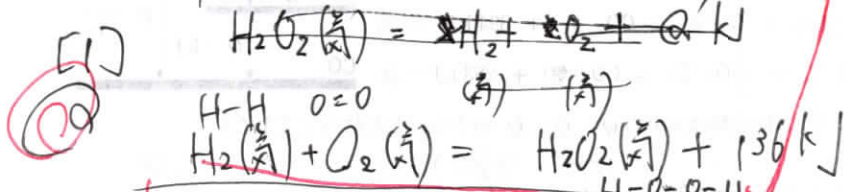 [1] H2O2(気) = H2 + O2 + Q kJ
(気) (気)
H-H O=O
H2(気) + O2(気) = H2O2(気) + 136 kJ
H-O-O-H